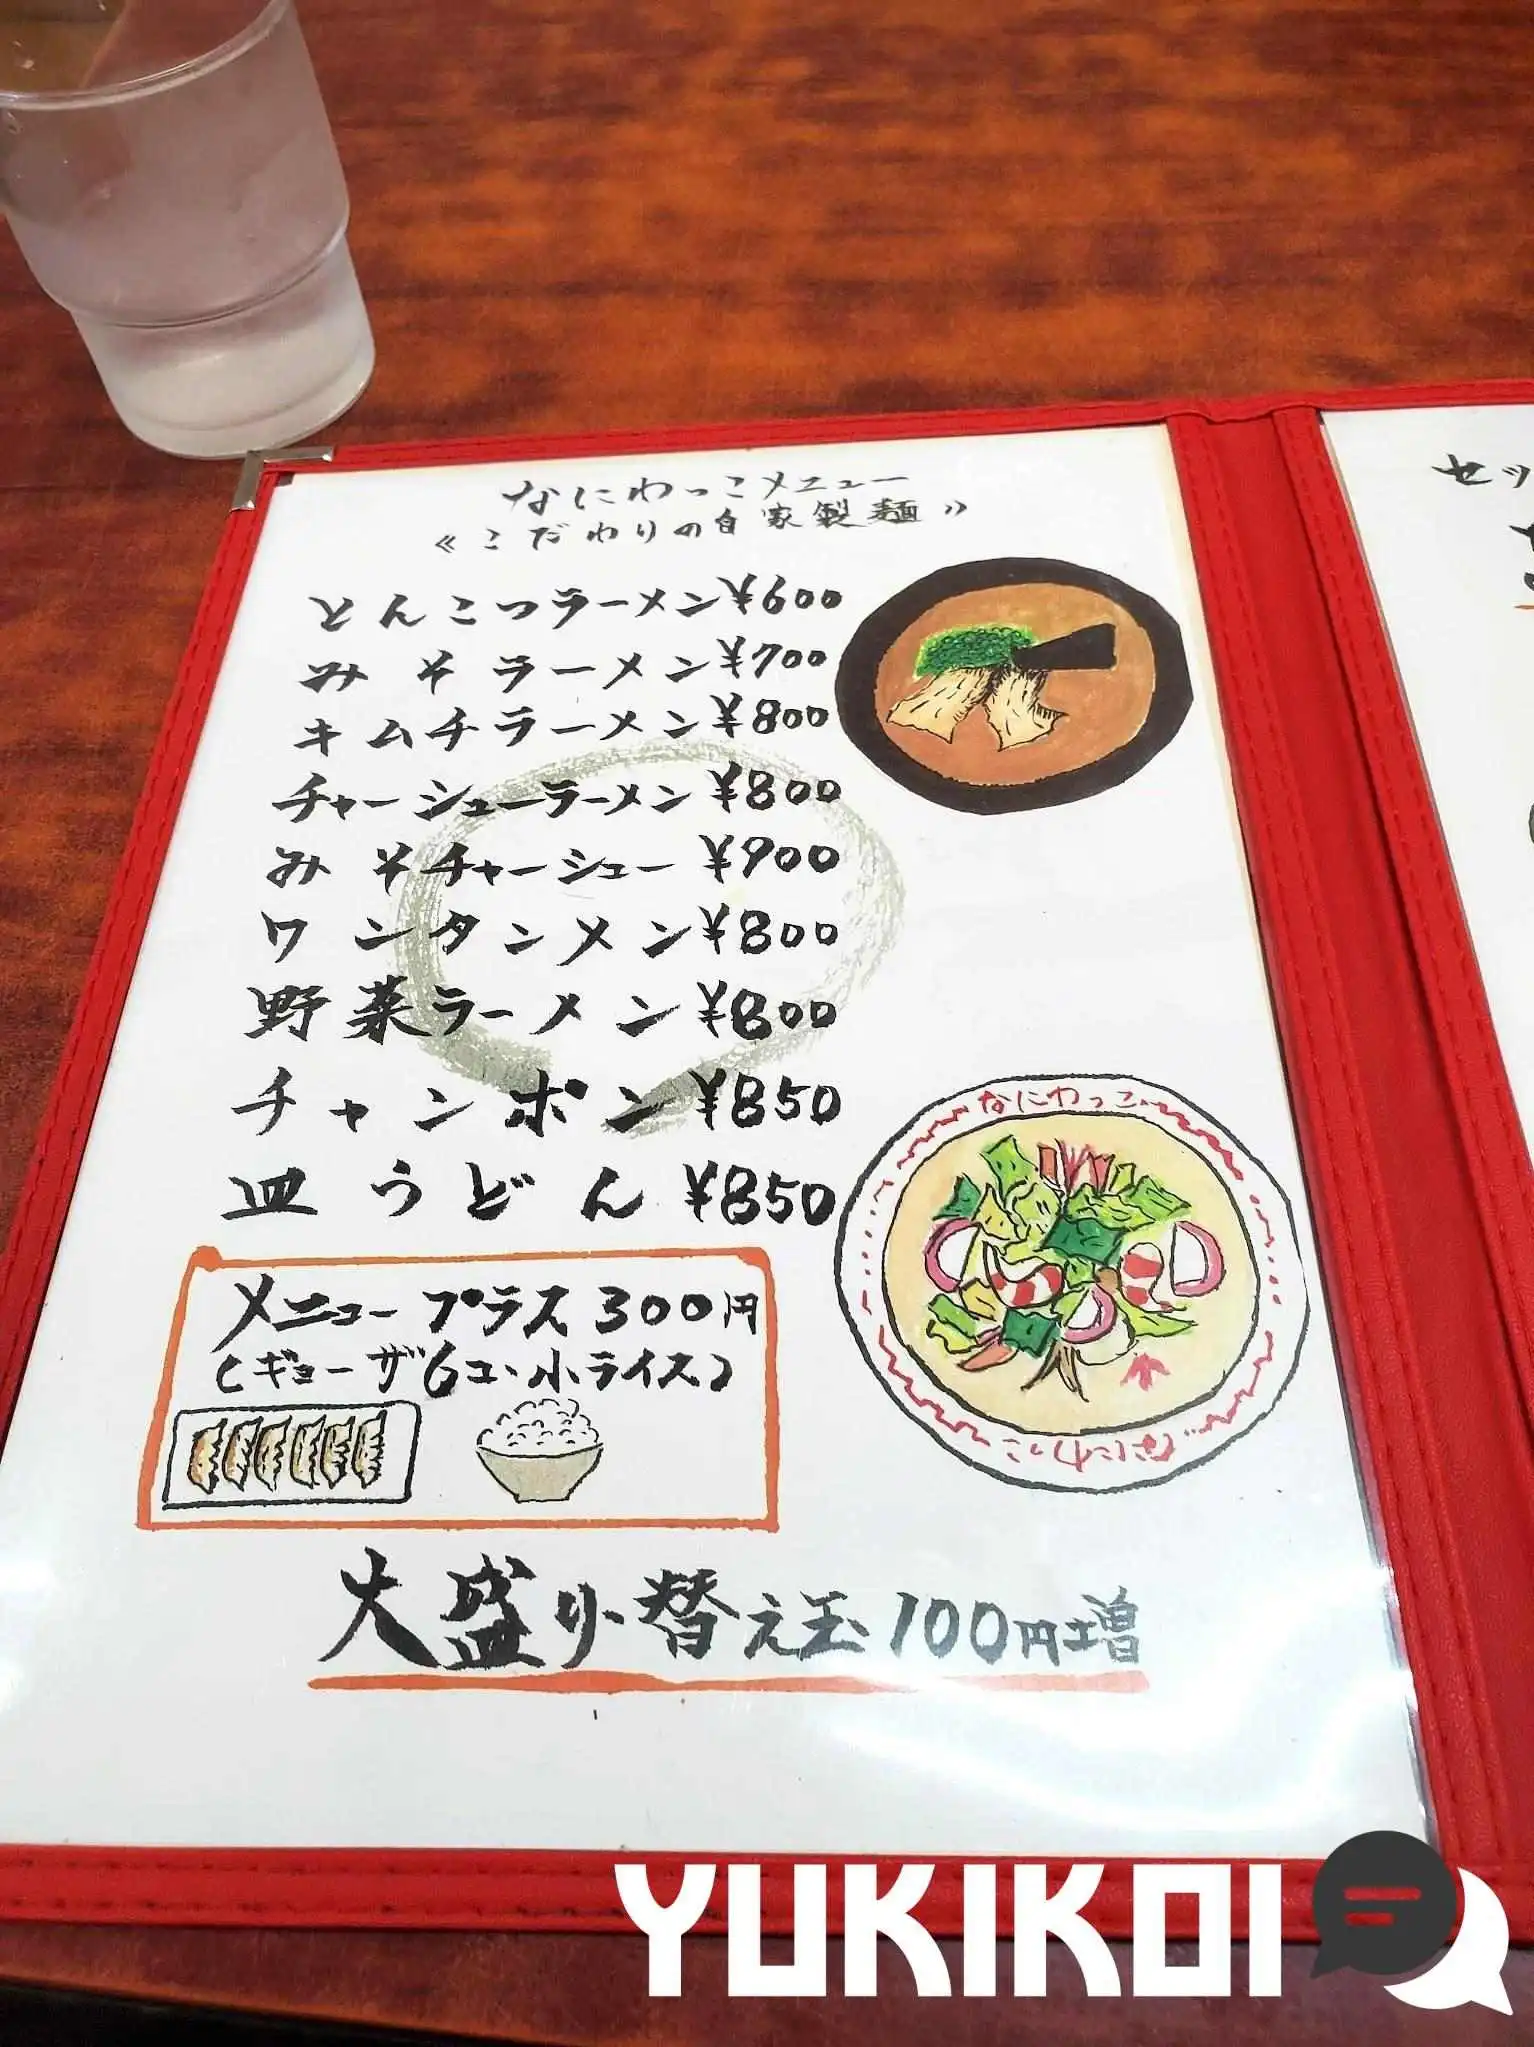 なにわっこメニュー
《こだわりの自家製麺》
とんこつラーメン¥600
みそラーメン¥700
キムチラーメン¥800
チャーシューラーメン¥800
みそチャーシュー¥900
ワンタンメン¥800
野菜ラーメン¥800
チャンポン¥850
皿うどん¥850
なにわっこ
なにわっこ
メニュープラス300円
(ギョーザ6コ・小ライス)
大盛り・替え玉100円増
セッ
YUKIKOI